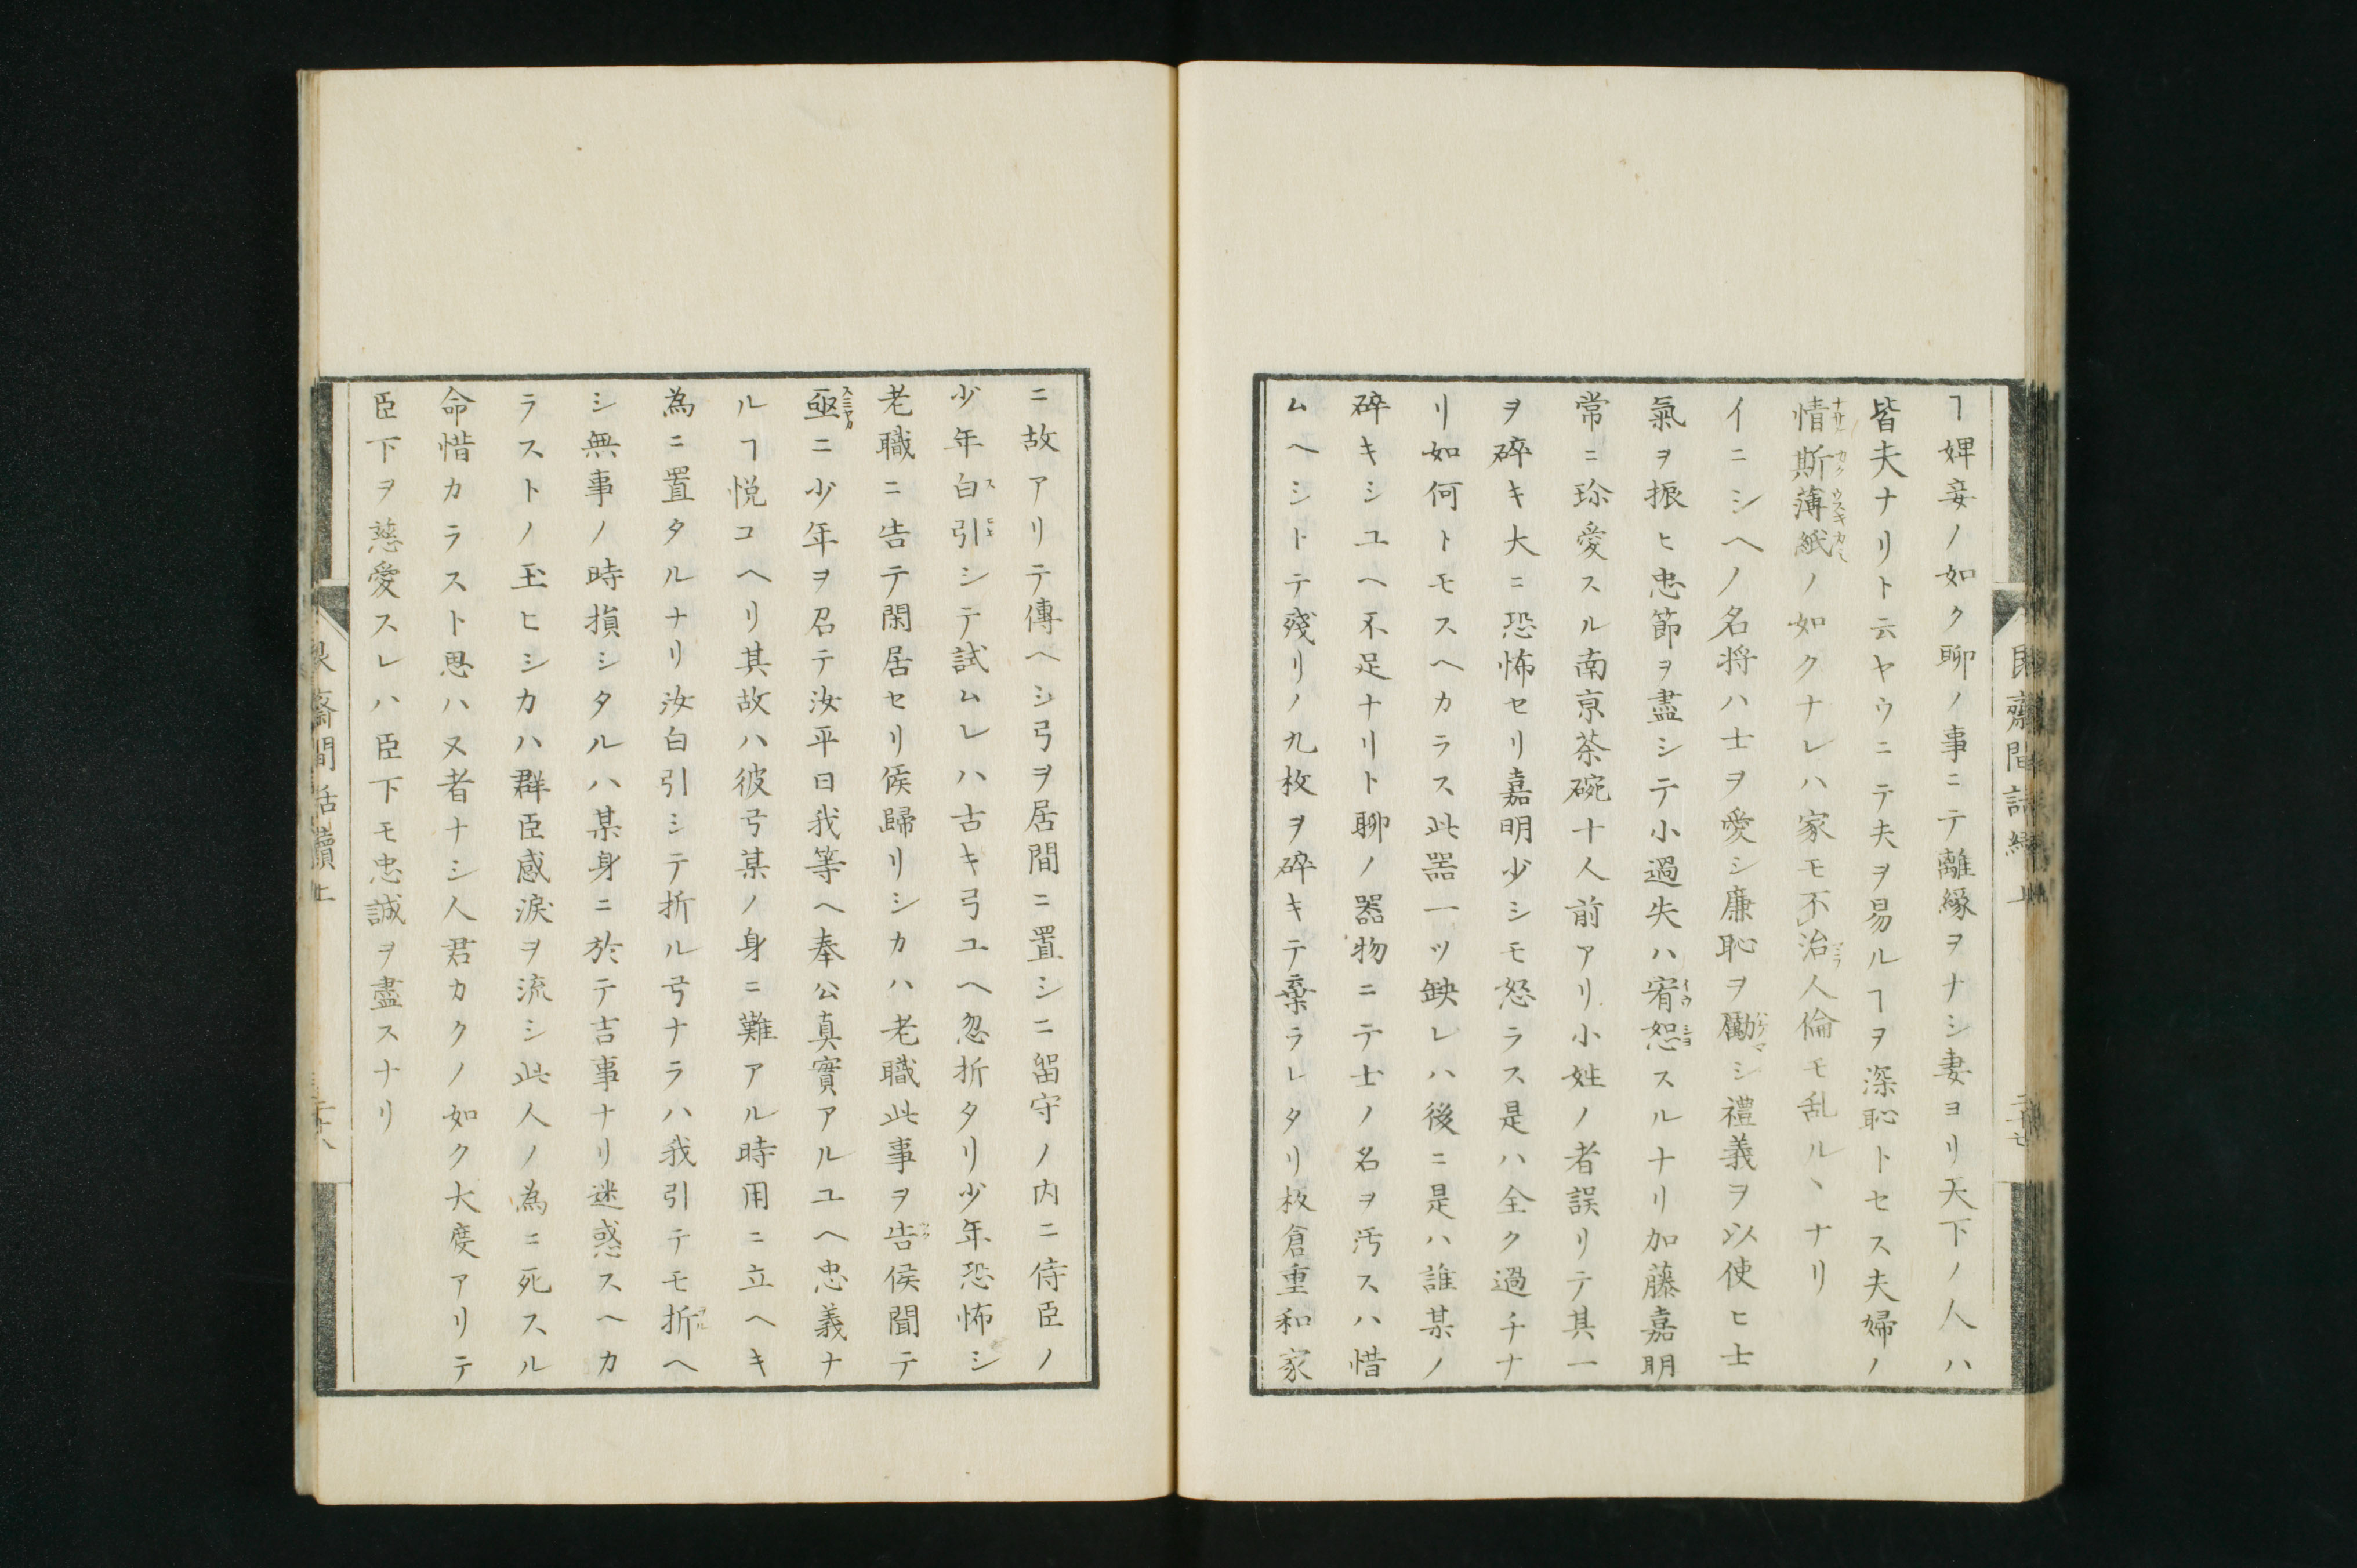 ヿ婢妾ノ如ク聊ノ事ニテ離縁ヲナシ妻ヨリ天下ノ人ハ
皆夫ナリト云ヤウニテ夫ヲ易ルヿヲ深恥トセス夫婦ノ
情斯薄紙ノ如クナレハ家モ不治人倫モ乱ルヽナリ
イニシヘノ名将ハ士ヲ愛シ廉恥ヲ勵シ禮義ヲ以使ヒ士
氣ヲ振ヒ忠節ヲ盡シテ小過失ハ宥恕スルナリ加藤嘉明
常ニ珍愛スル南京茶碗十人前アリ小姓ノ者誤リテ其一
ヲ碎キ大ニ恐怖セリ嘉明少シモ怒ラス是ハ全ク過チナ
リ如何トモスヘカラス此噐一ツ缺レハ後ニ是ハ誰某ノ
碎キシユヘ不足ナリト聊ノ噐物ニテ士ノ名ヲ汚スハ惜
ムヘシトテ殘リノ九枚ヲ碎キテ棄ラレタリ板倉重和家
艮齋間話續上
ニ故アリテ傳ヘシ弓ヲ居間ニ置シニ留守ノ内ニ侍臣ノ
少年白引シテ試ムレハ古キ弓ユヘ忽折タリ少年恐怖シ
老職ニ告テ閑居セリ侯歸リシカハ老職此事ヲ告侯聞テ
亟ニ少年ヲ召テ汝平日我等ヘ奉公真實アルユヘ忠義ナ
ルヿ悦コヘリ其故ハ彼弓某ノ身ニ難アル時用ニ立ヘキ
為ニ置タルナリ汝白引シテ折ル弓ナラハ我引テモ折ヘ
シ無事ノ時損シタルハ某身ニ於テ吉事ナリ迷惑スヘカ
ラストノ玉ヒシカハ群臣感涙ヲ流シ此人ノ為ニ死スル
命惜カラスト思ハヌ者ナシ人君カクノ如ク大度アリテ
臣下ヲ慈愛スレハ臣下モ忠誠ヲ盡スナリ
艮齋間話續上